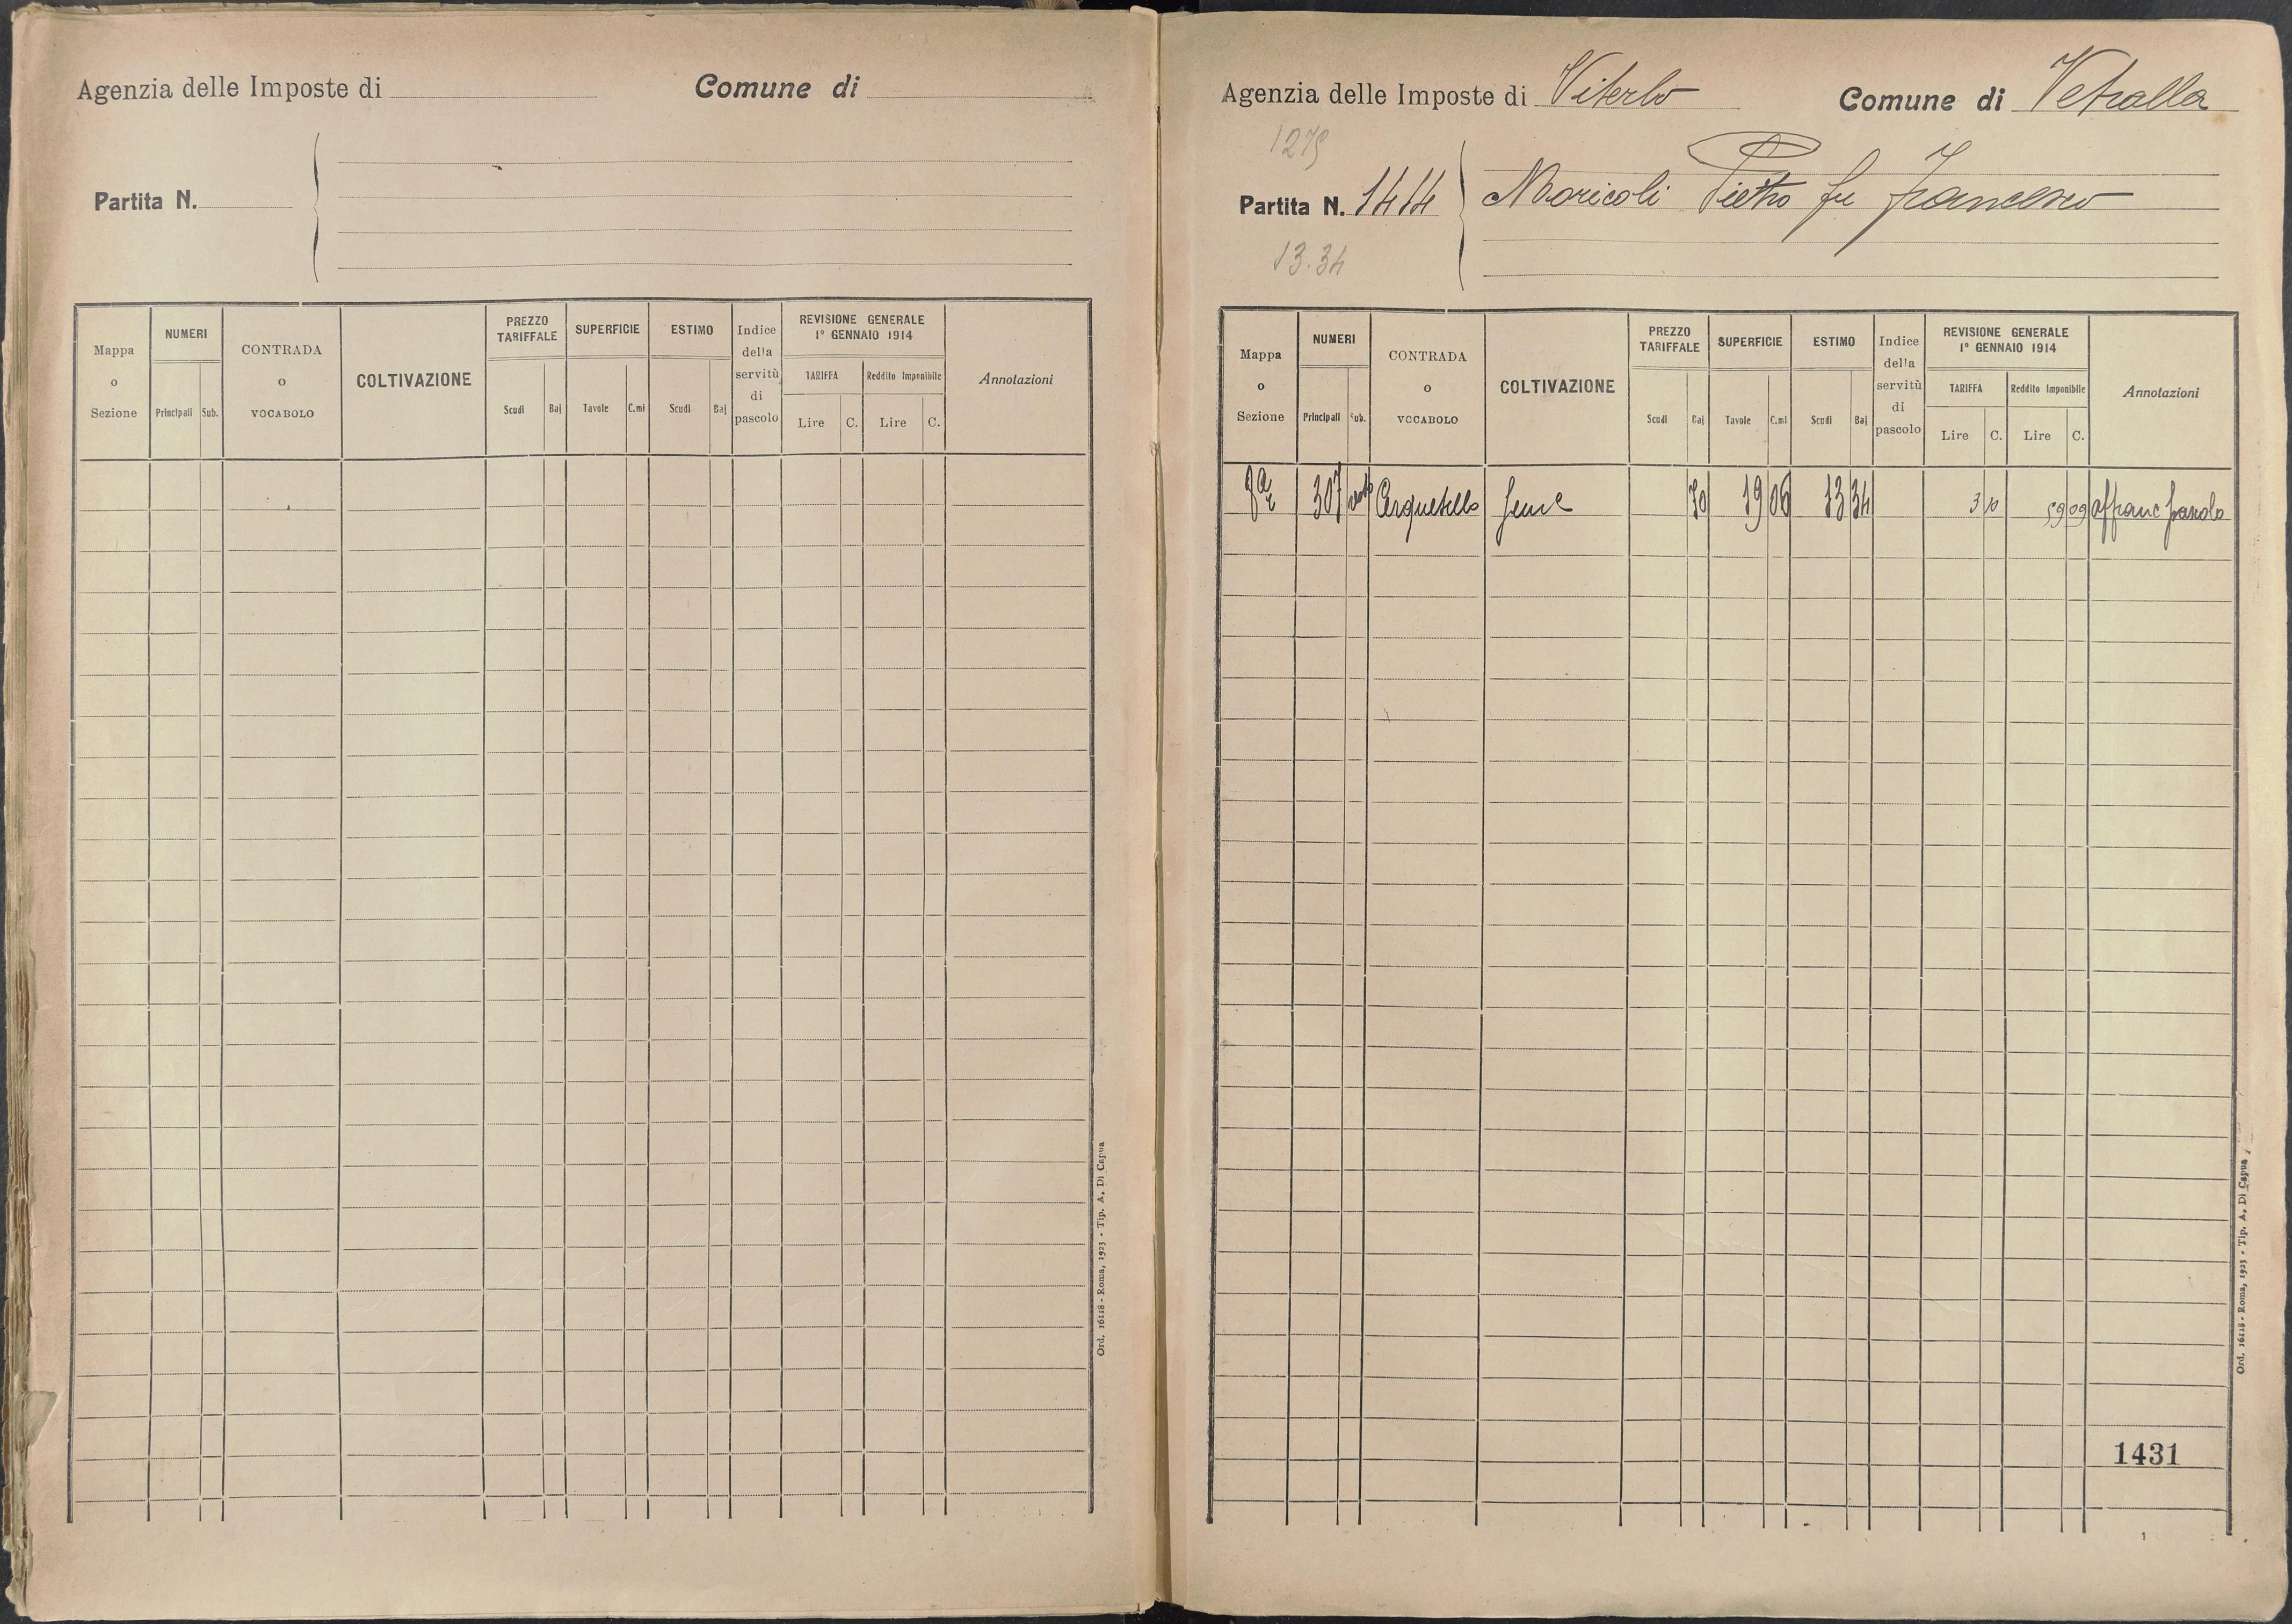 Agenzia delle Imposte di
Comune di
Partita N.
Mappa o Sezione
NUMERI
Principali Sub.
CONTRADA o VOCABOLO
COLTIVAZIONE
PREZZO TARIFFALE
Scudi Baj
SUPERFICIE
Tavole C.mi
ESTIMO
Scudi Baj
Indice della servitù di pascolo
REVISIONE GENERALE
1° GENNAIO 1914
TARIFFA
Reddito Imponibile
Lire C. Lire C.
Annotazioni
Ord. 16118 - Roma, 1923 - Tip. A. Di Capua
Agenzia delle Imposte di Viterbo
Comune di Vetralla
1279
Partita N. 1414
Moricoli Pietro fu Francesco
13.34
Mappa o Sezione
NUMERI
Principali Sub.
CONTRADA o VOCABOLO
COLTIVAZIONE
PREZZO TARIFFALE
Scudi Baj
SUPERFICIE
Tavole C.mi
ESTIMO
Scudi Baj
Indice della servitù di pascolo
REVISIONE GENERALE
1° GENNAIO 1914
TARIFFA
Reddito Imponibile
Lire C. Lire C.
Annotazioni
307 Cerquetello 70 19 06 13 34 3 10 59 09 affranc
1431
Ord. 16118 - Roma, 1923 - Tip. A. Di Capua